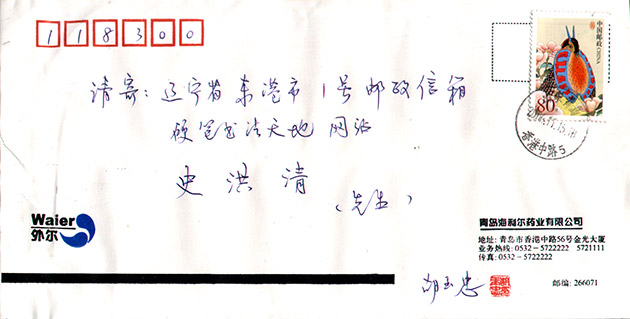 118300
中国邮政 CHINA
80分
香港中路5
请寄：辽宁省东港市1号邮政信箱
硬笔书法天地 网站
史洪清
（先生）
Waier
外尔
青岛海利尔药业有限公司
地址: 青岛市香港中路56号金光大厦
业务热线: 0532-5722222 5721111
传真: 0532-5722222
邮编: 266071
胡玉忠